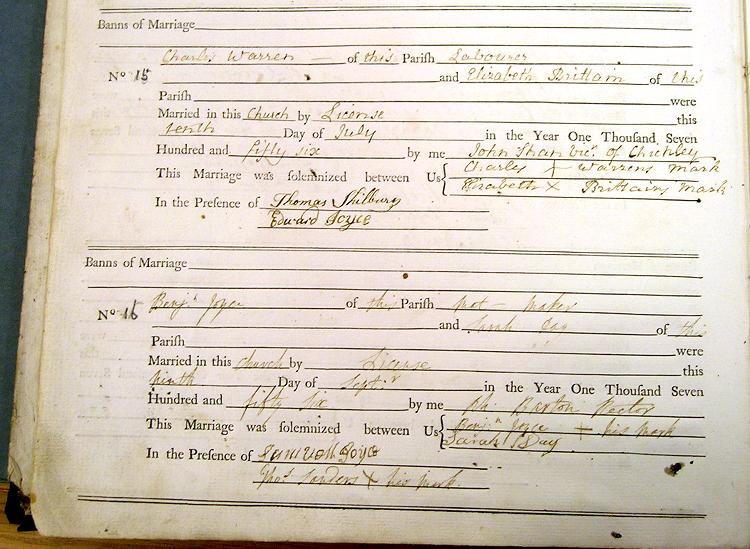 Banns of Marriage
Charles Warren — of this Parish Labourer
No 15 and Elizabeth Brittain of this
Parish were
Married in this Church by License this
tenth Day of July in the Year One Thousand Seven
Hundred and fifty six by me John Vicr. of
This Marriage was solemnized between Us { Charles X Warrens mark
Elizabeth X Brittains Mark
In the Presence of Thomas Shilburn
Edward Joyce
Banns of Marriage
No 16 Benjn Joyce of this Parish Mat-Maker
and Sarah Day of this
Parish were
Married in this Church by License this
ninth Day of Septr in the Year One Thousand Seven
Hundred and fifty six by me Barton Rector
This Marriage was solemnized between Us { Benjn Joyce + his mark
Sarah Day
In the Presence of Samuell Joyce
Thos Sanders X his mark